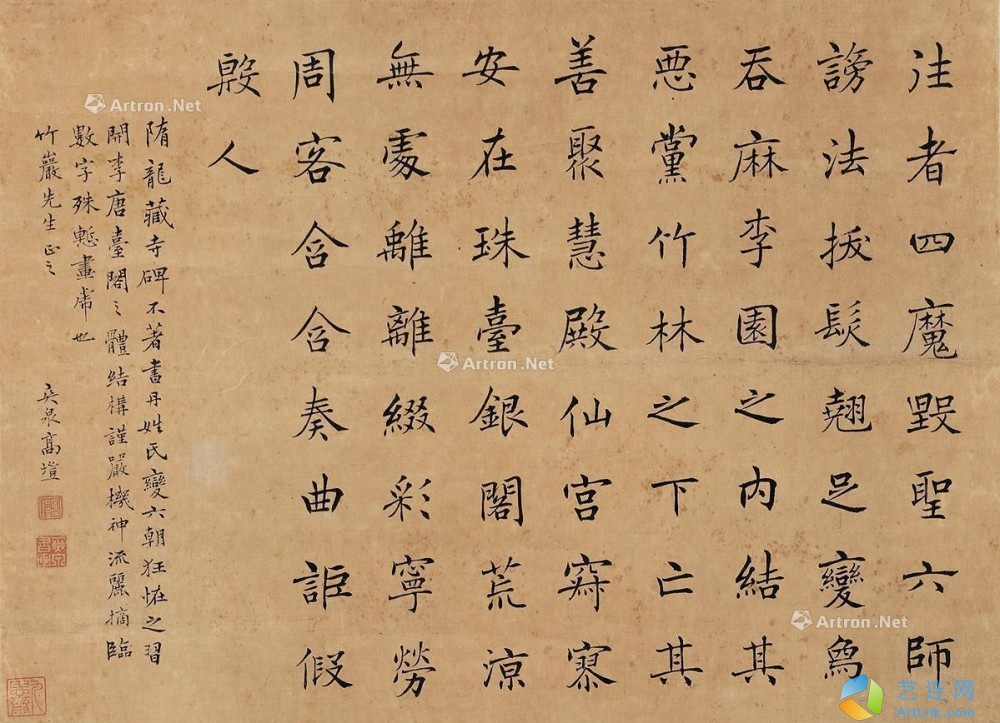 注者四魔毁聖六師
謗法拔髮翹足變為
吞麻李園之内結其
惡黨竹林之下亡其
善聚慧殿仙宫寂寥
安在珠臺銀閣荒涼
無處離離綴彩寧勞
周客含含奏曲詎假
殷人
隋龍藏寺碑不著書丹姓氏變六朝狂怪之習
開李唐臺閣之體結構謹嚴機神流麗摘臨
數字殊慙畫虎也
竹巖先生正之
奕泉高塏
Artron.Net
Artron.Net
Artron.Net
艺连网
ArtLnk.com